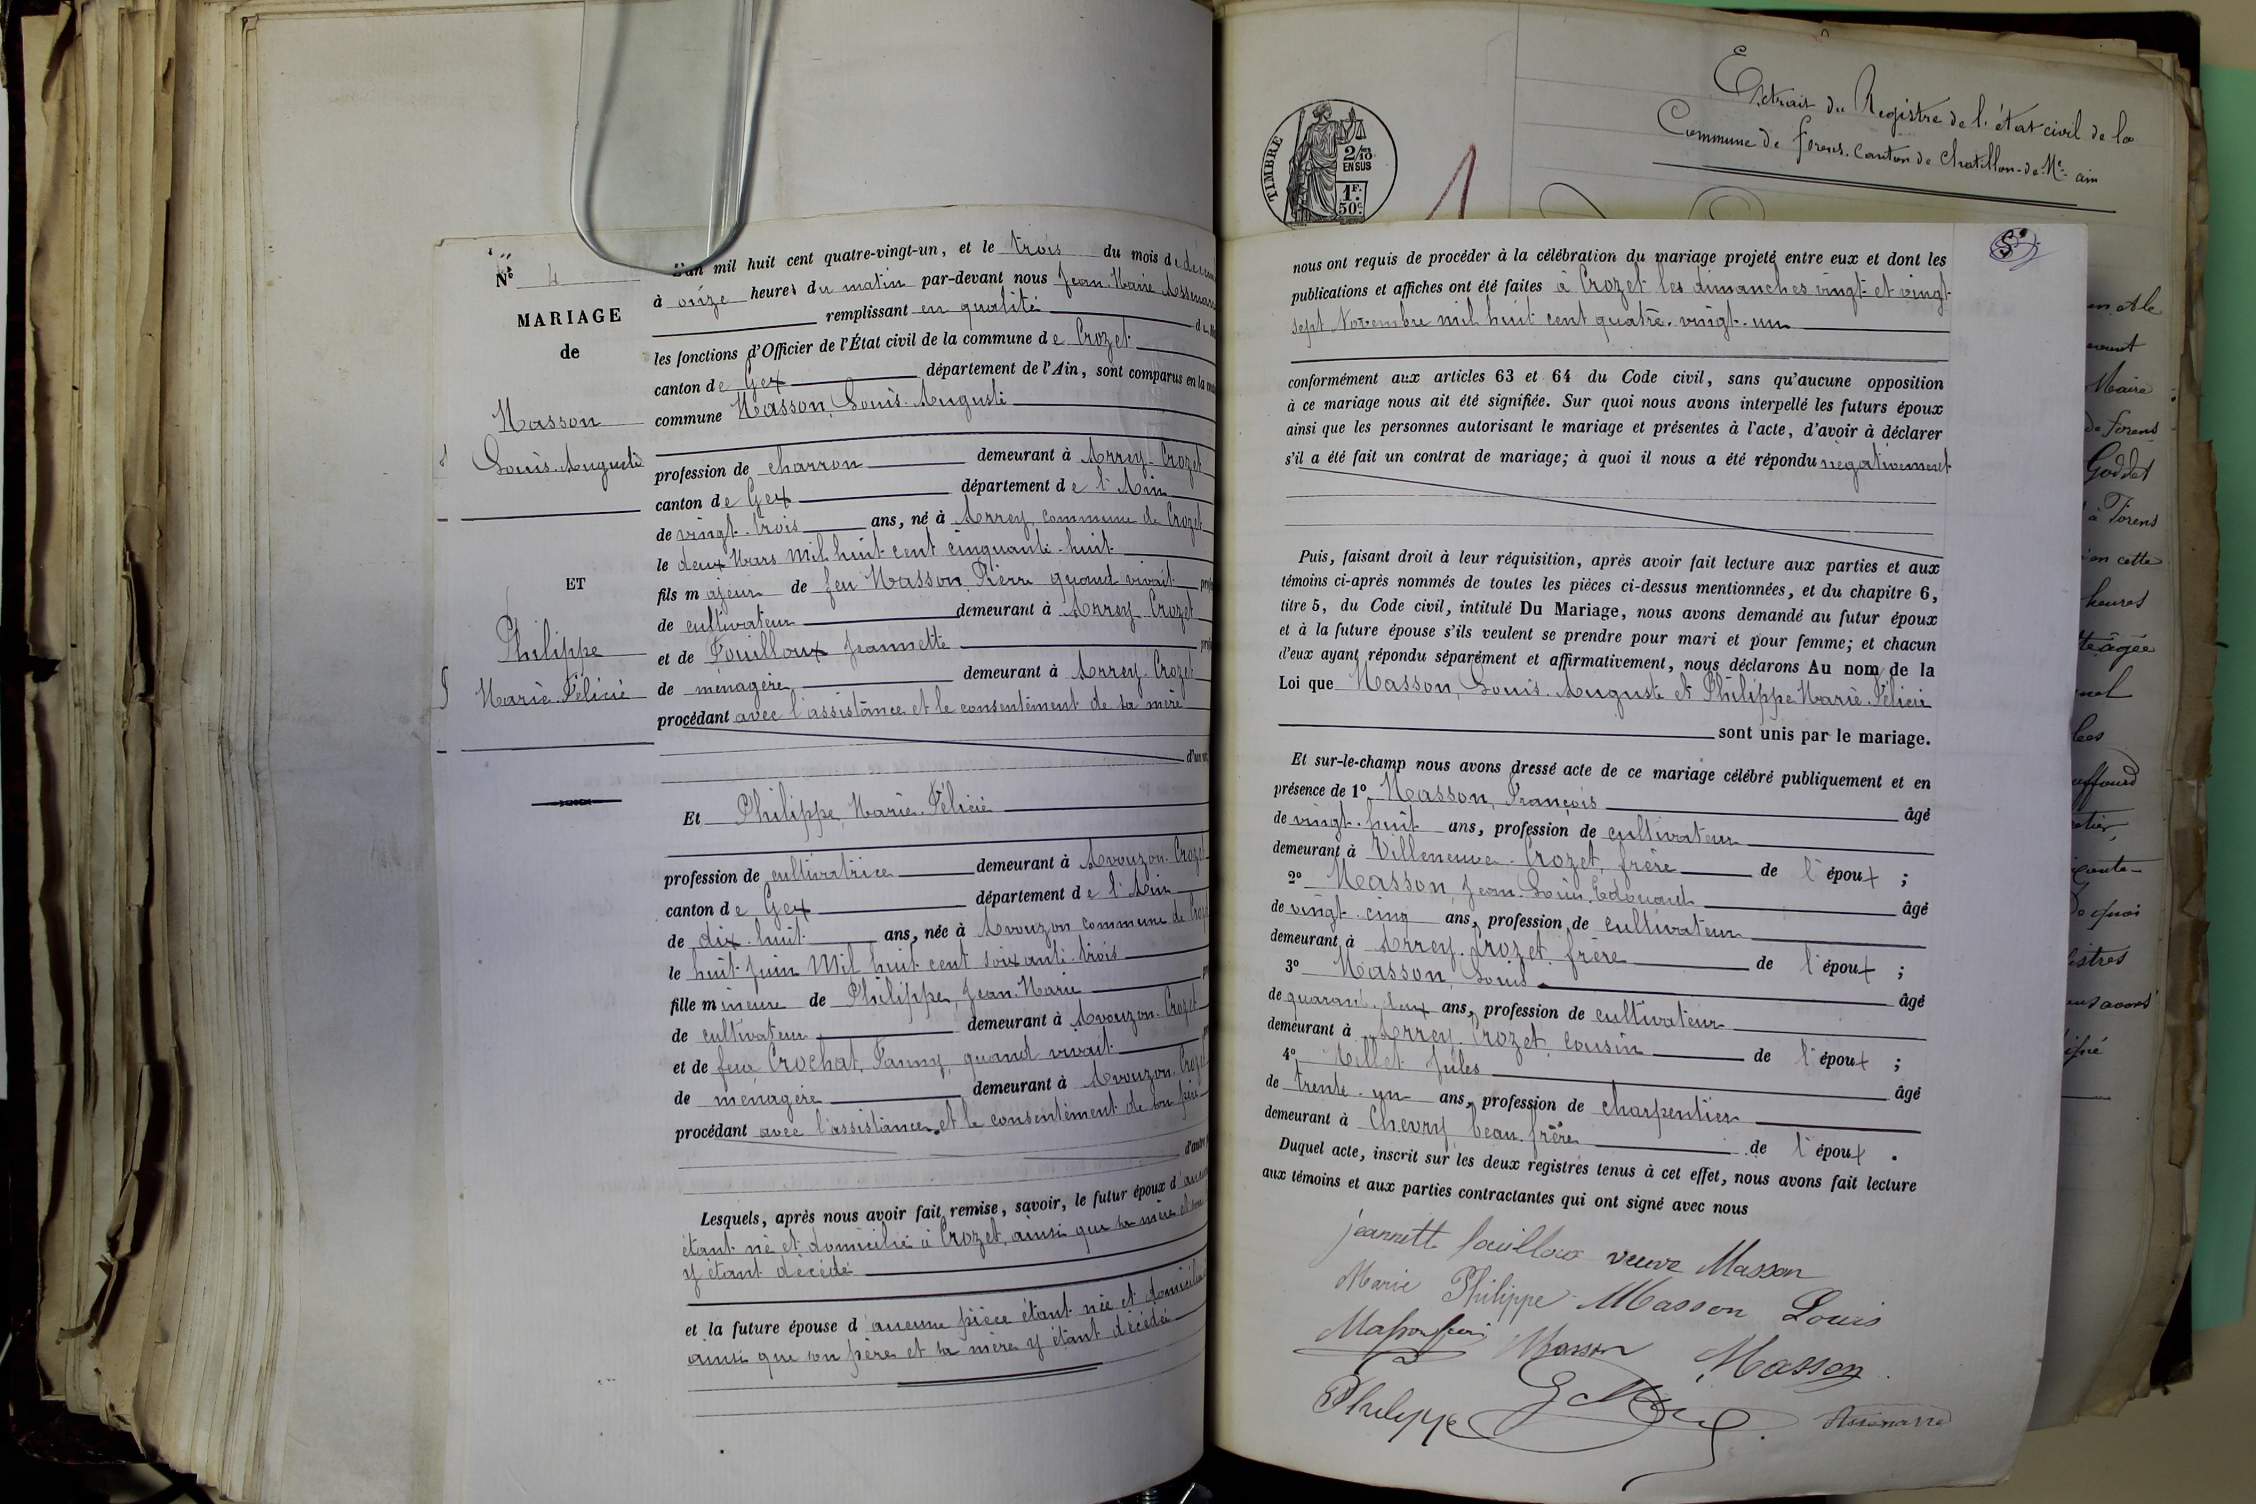 N° 4
MARIAGE
de
Masson
Louis Auguste
ET
Philippe
Marie Félicie
L'an mil huit cent quatre-vingt-un, et le trois du mois de
à onze heures du matin par-devant nous Jean Marie
remplissant en qualité
les fonctions d'Officier de l'État civil de la commune de Crozet
canton de Gex département de l'Ain, sont comparus en la
commune Masson, Louis Auguste
profession de charron demeurant à Arrey-Crozet
canton de Gex département de l'Ain
de vingt-trois ans, né à Arrey commune de Crozet
le deux Mars Mil huit cent cinquante-huit
fils majeur de feu Masson, Pierre quand vivait
de cultivateur demeurant à Arrey-Crozet
et de Fouilloux Jeannette
de ménagère demeurant à Arrey-Crozet
procédant avec l'assistance et le consentement de sa mère
Et Philippe, Marie Félicie
profession de cultivatrice demeurant à Avouzon-Crozet
canton de Gex département de l'Ain
de dix-huit ans, née à Avouzon commune de
le huit Juin Mil huit cent soixante-trois
fille mineure de Philippe, Jean-Marie
de cultivateur demeurant à Avouzon-Crozet
et de feue Crochat, Fanny, quand vivait
de ménagère demeurant à Avouzon-Crozet
procédant avec l'assistance et le consentement de son père
Lesquels, après nous avoir fait remise, savoir, le futur époux d'
étant né et domicilié à Crozet, ainsi que sa mère et
y étant décédé
et la future épouse d'aucune pièce étant née et
ainsi que son père et sa mère y étant décédée
TIMBRE
2/10
EN SUS
1F.
50c
Extrait du Registre de l'état civil de la
Commune de forens. Canton de Chatillon-de-Me. ain
nous ont requis de procéder à la célébration du mariage projeté entre eux et dont les
publications et affiches ont été faites à Crozet les dimanches vingt et vingt
sept Novembre mil huit cent quatre-vingt-un
conformément aux articles 63 et 64 du Code civil, sans qu'aucune opposition
à ce mariage nous ait été signifiée. Sur quoi nous avons interpellé les futurs époux
ainsi que les personnes autorisant le mariage et présentes à l'acte, d'avoir à déclarer
s'il a été fait un contrat de mariage; à quoi il nous a été répondu négativement
Puis, faisant droit à leur réquisition, après avoir fait lecture aux parties et aux
témoins ci-après nommés de toutes les pièces ci-dessus mentionnées, et du chapitre 6,
titre 5, du Code civil, intitulé Du Mariage, nous avons demandé au futur époux
et à la future épouse s'ils veulent se prendre pour mari et pour femme; et chacun
d'eux ayant répondu séparément et affirmativement, nous déclarons Au nom de la
Loi que Masson, Louis Auguste et Philippe Marie Félicie
sont unis par le mariage.
Et sur-le-champ nous avons dressé acte de ce mariage célébré publiquement et en
présence de 1° Masson, François âgé
de vingt-huit ans, profession de cultivateur
demeurant à Villeneuve-Crozet, frère de l'époux ;
2° Masson, Jean Louis Edouard âgé
de vingt-cinq ans, profession de cultivateur
demeurant à Arrey Crozet, frère de l'époux ;
3° Masson, Louis âgé
de quarante-deux ans, profession de cultivateur
demeurant à Arrey Crozet, cousin de l'époux ;
4° Millet Jules âgé
de trente-un ans, profession de charpentier
demeurant à Chevry, beau-frère de l'époux .
Duquel acte, inscrit sur les deux registres tenus à cet effet, nous avons fait lecture
aux témoins et aux parties contractantes qui ont signé avec nous
jeannette fouilloux veuve Masson
Marie Philippe Masson Louis
Masson Masson
Philippe
Maire
de forens
à Forens
en cette
heures